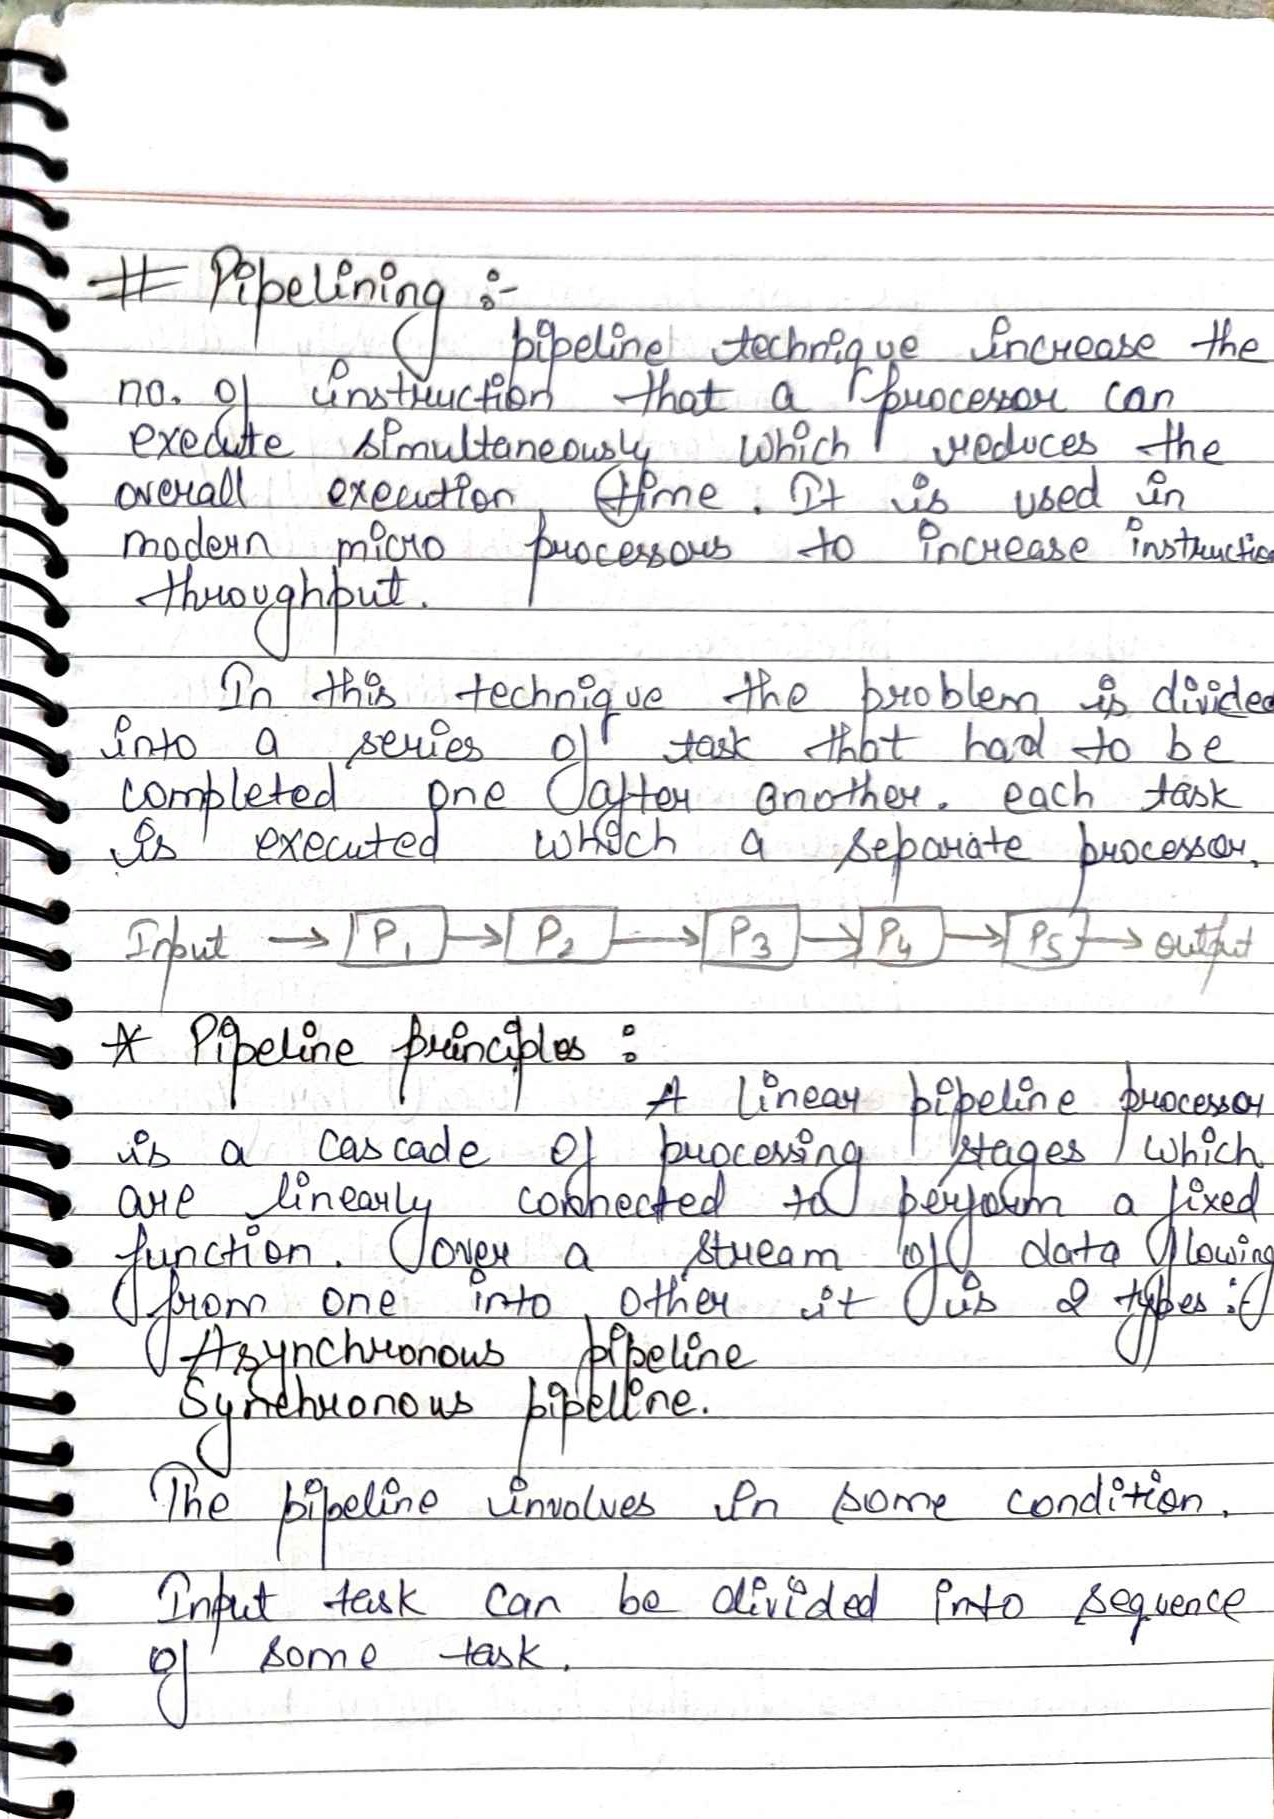 # Pipelining :-
pipeline technique increase the
no. of instruction that a processor can
execute simultaneously which reduces the
overall execution time. It is used in
modern micro processors to increase instructio
throughput.
In this technique the problem is divided
into a series of task that had to be
completed one after another. each task
is executed which a separate processor.
Input → P1 → P2 → P3 → P4 → P5 → output
* Pipeline principles :
A linear pipeline processor
is a cascade of processing stages which
are linearly connected to perform a fixed
function. over a stream of data flowing
from one into other it is 2 types :-
Asynchronous pipeline
Synchronous pipeline.
The pipeline involves in some condition.
Input task can be divided into sequence
of some task.